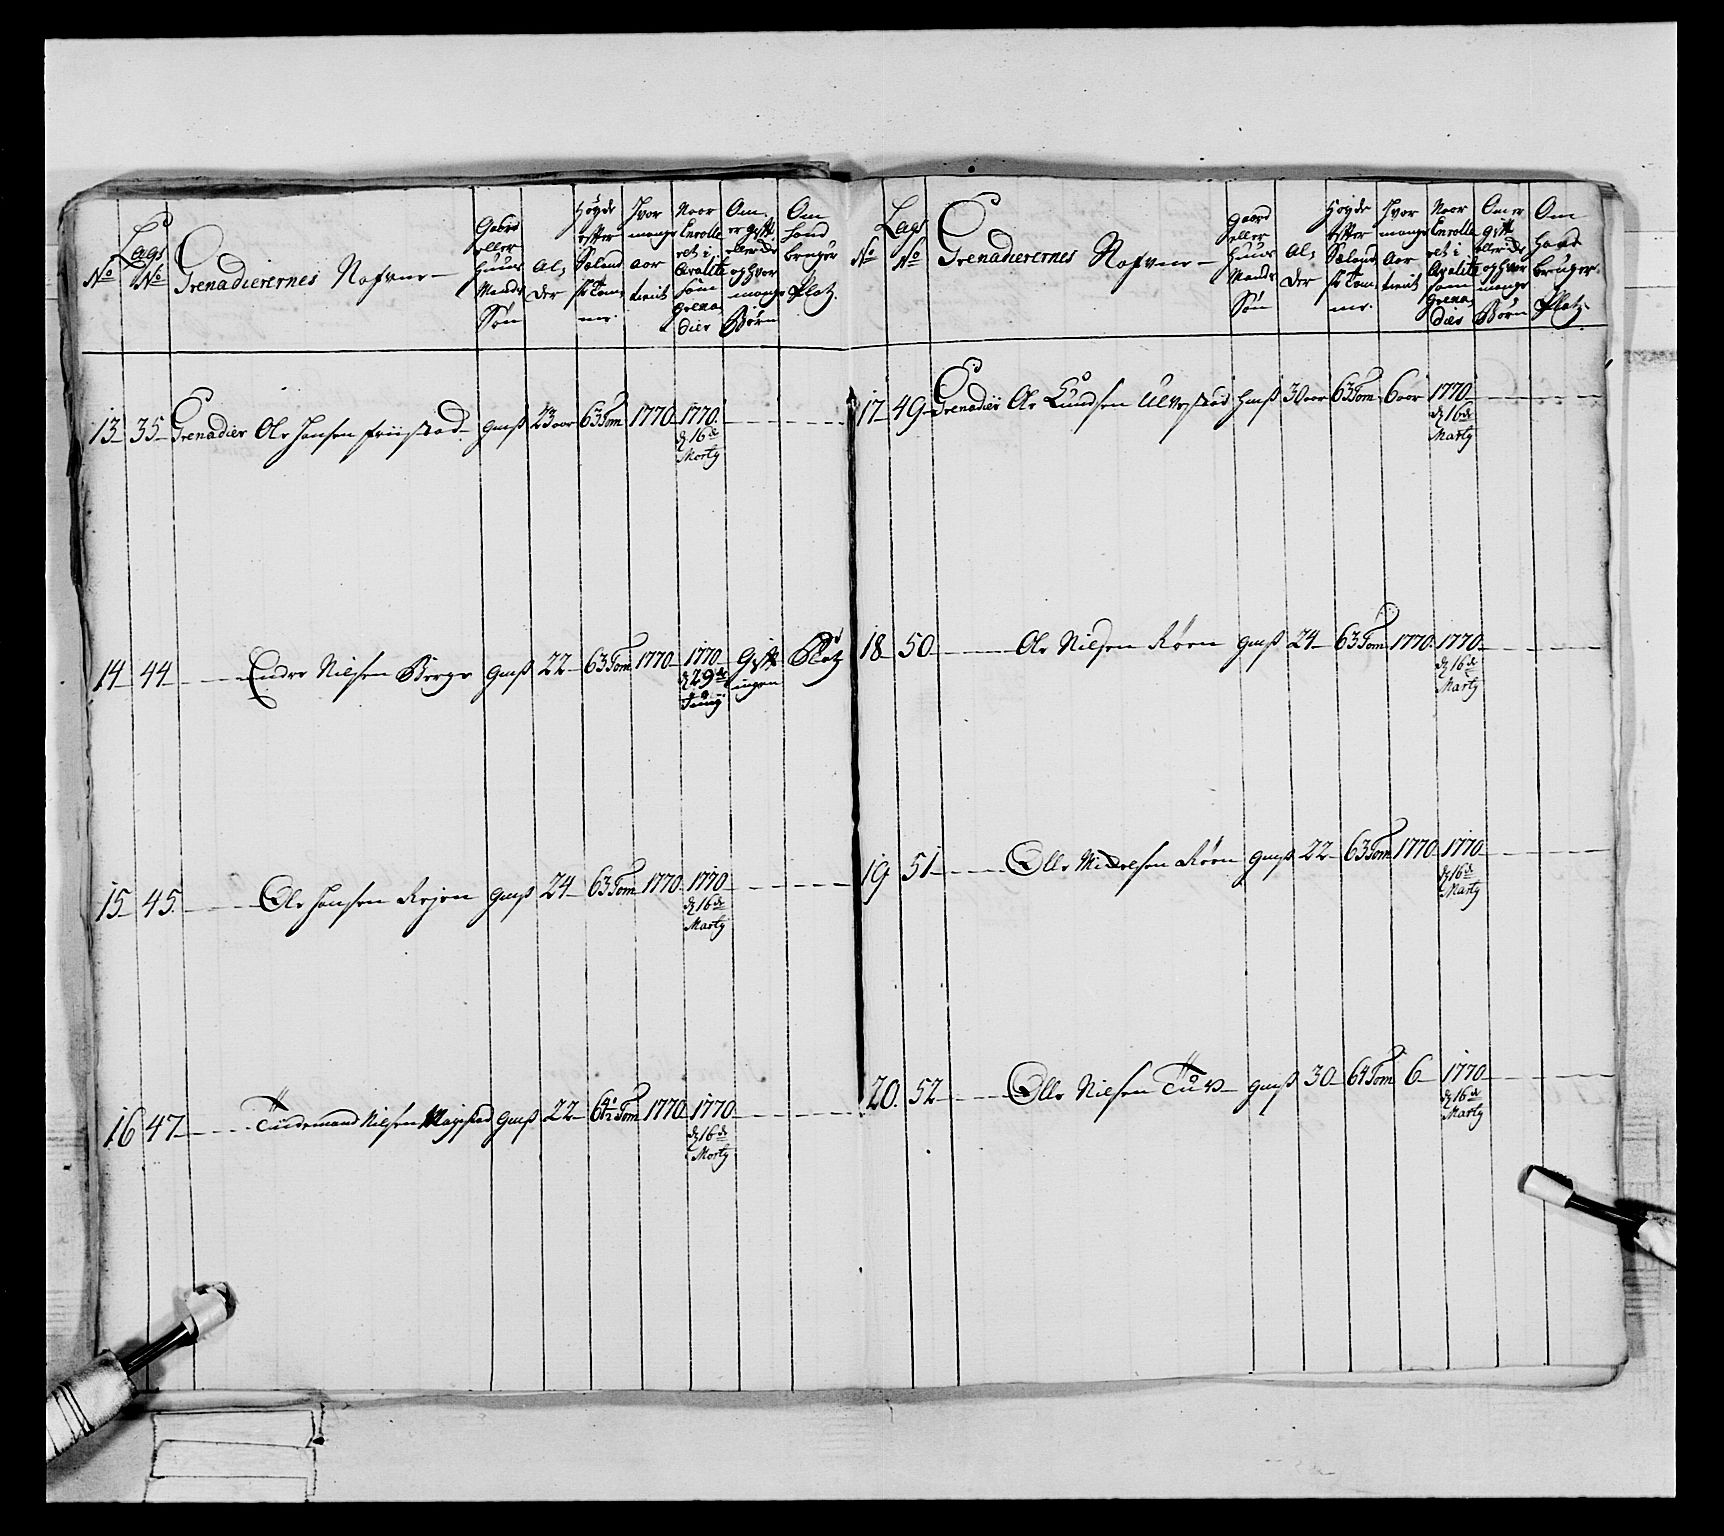 No
Lags No
Grenadierernes Nafvne
Gaard eller Huus Mands Søn
Alder
Høyde efter Sælands Tomme
Hvor mange aar tient
Naar Enrolleret i Qvalite som Grenadier
Om er gift eller ei og hvor mange Børn
Om hand bruger Platz
13 35 Grenadier Ole Hansen gmß 23 aar 63 Tom 1770 1770 d 16de Marty
14 44 Endre Nilsen Berge gmß 22 63 Tom 1770 1770 d 29de Juny Gift ingen Platz
15 45 Ole Hansen gmß 24 63 Tom 1770 1770 d 16de Marty
16 47 Tiidemand Nilsen gmß 22 64½ Tom 1770 1770 d 16de Marty
No
Lags No
Grenadierernes Nafvne
Gaard eller Huus Mands Søn
Alder
Høyde efter Sælands Tomme
Hvor mange Aar tient
Naar Enrolleret i Qvalite som Grenadier
Om er gift eller ei og hvor mange Børn
Om Hand bruger Platz
17 49 Grenadier Ole Knudsen hmß 30 aar 63 Tom 6 aar 1770 d 16de Marty
18 50 Ole Nilsen Røen gmß 24 63 Tom 1770 1770 d 16de Marty
19 51 Olle Røen gmß 22 63 Tom 1770 1770 d 16de Marty
20 52 Olle Nilsen gmß 30 64 Tom 6 1770 d 16de Marty